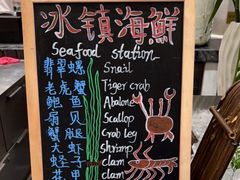 冰镇海鲜
Seafood station
翡翠螺 Snail
老虎蟹 Tiger crab
鲍鱼 Abalone
扇贝 Scallop
蟹腿 Crab leg
大虾 shrimp
蛏子 clam
花甲 clam